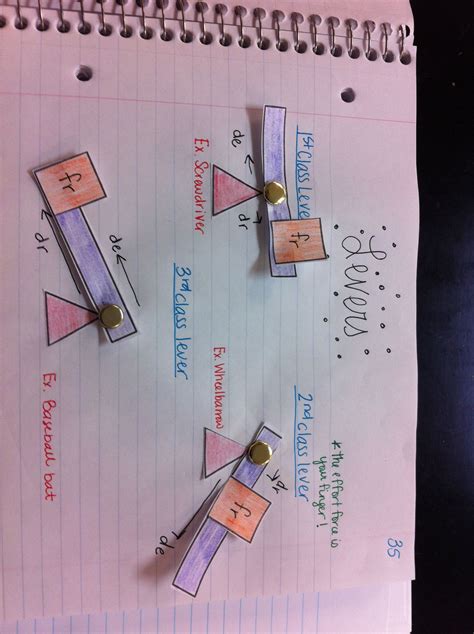 35
Levers
* The effort force is
your finger!
1st Class Lever
fr
de
dr
Ex. Screwdriver
2nd class lever
dr
fr
de
Ex. Wheelbarrow
3rd class lever
de
fr
dr
Ex. Baseball bat